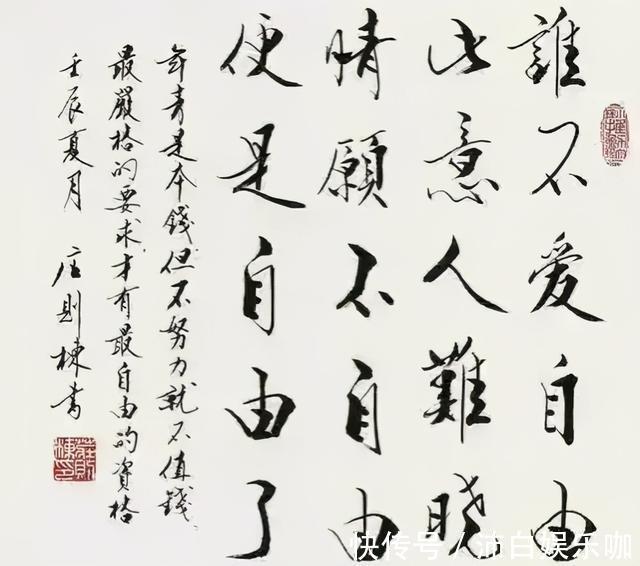 誰不爱自由
此意人難曉
情願不自由
便是自由了
年青是本錢但不努力就不值錢
最嚴格的要求才有最自由的資格
壬辰夏月 庄則棟书
快传号/沛白娱乐咖